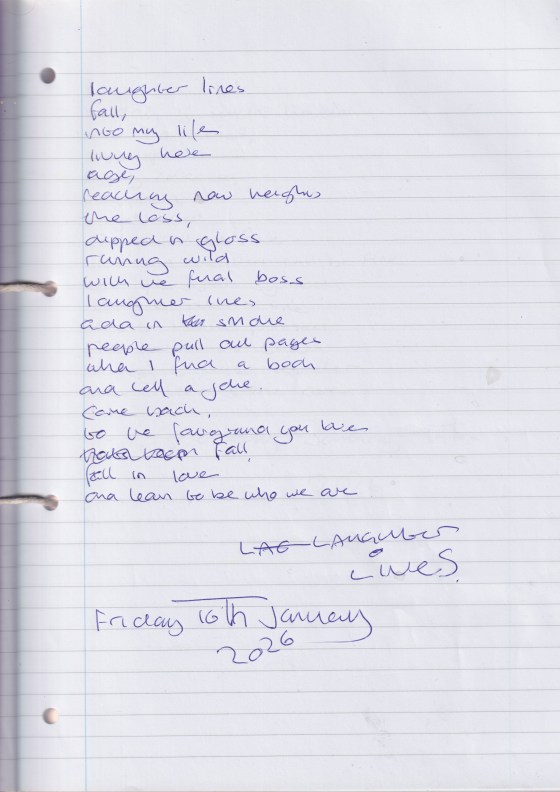 laughter lines
fall,
into my life
living here
age,
reaching new heights
the loss,
dipped in gloss
running wild
with the final boss
laughter lines
add in smoke
people pull out pages
when I find a book
and tell a joke.
Come back,
to the you
fall,
fall in love
and learn to be who we are
LAUGHTER
LINES.
Friday 16th January
2026